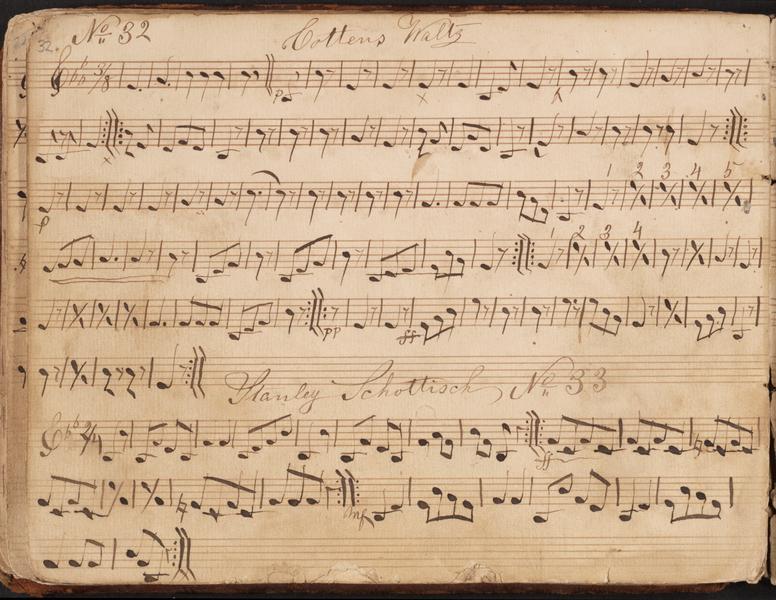 32. No 32 Cottens Waltz
3/8
p
1 2 3 4 5
p
1 2 3 4
pp ff
Stanley Schottisch, No 33
2/4
ff
mf